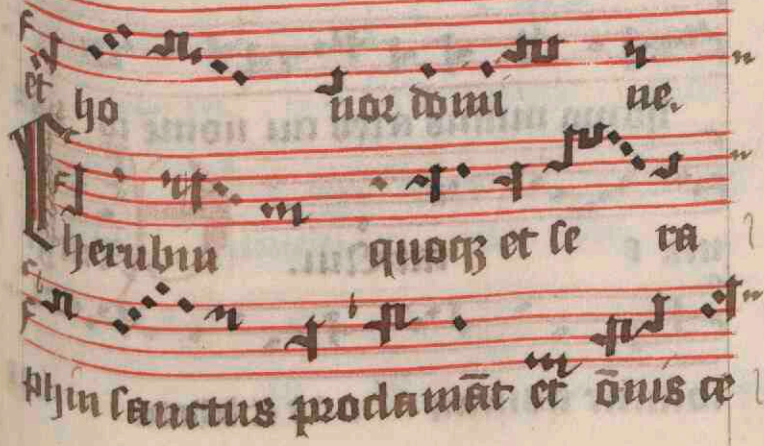 et ho nor domi ne.
Cherubin quoqꝫ et se ra
phin sanctus proclamāt et ōnis ce